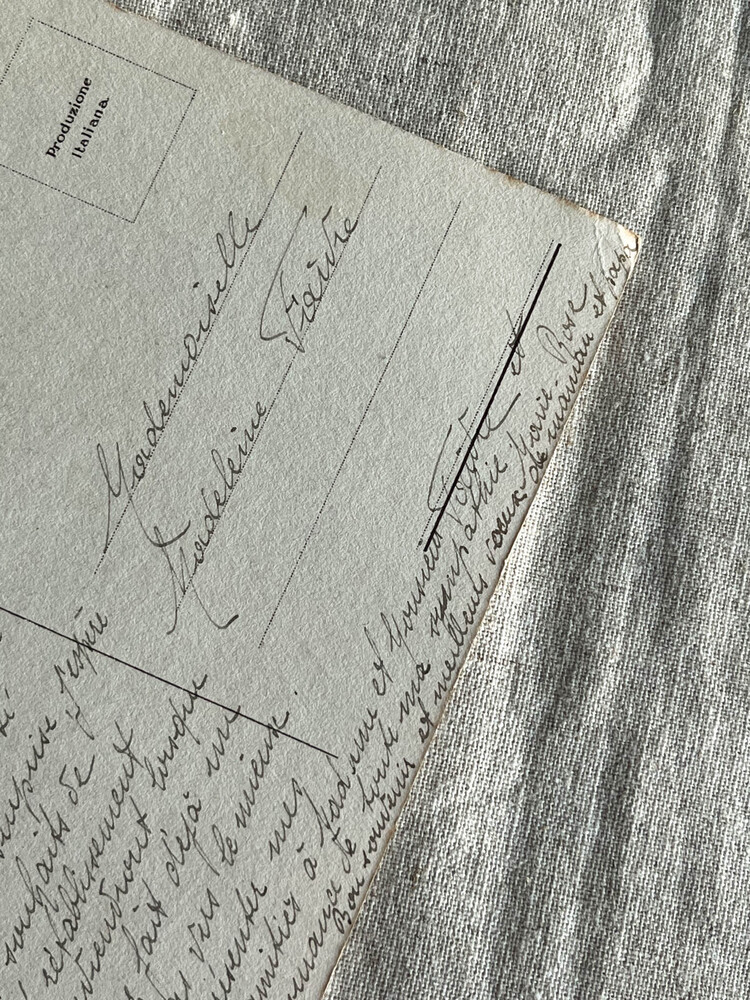 Produzione
Italiana.
Mademoiselle
Madeleine Faivre
surprise j'espère
souhaits de
rétablissement
viendront lorsque
fait déjà un
vers le mieux.
présenter mes
amitiés à Madame et Monsieur Faivre et
de toute ma sympathie Marie-Rose
Bon souvenir et meilleurs voeux de maman et papa